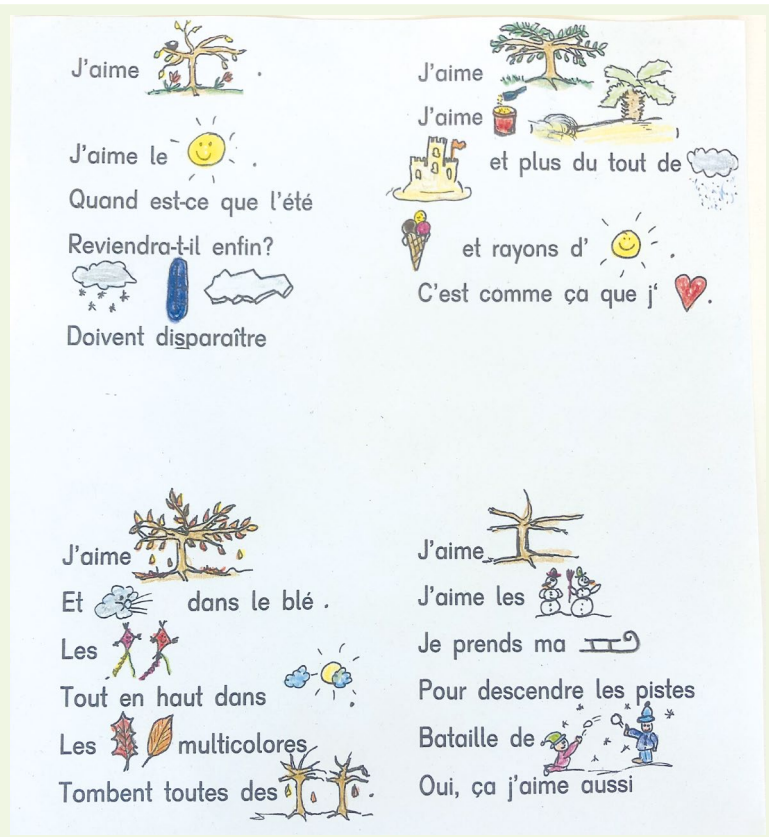 J'aime .
J'aime le .
Quand est-ce que l'été
Reviendra-t-il enfin?
Doivent disparaître
J'aime
J'aime
et plus du tout de
et rayons d' .
C'est comme ça que j' .
J'aime
Et dans le blé .
Les
Tout en haut dans .
Les multicolores
Tombent toutes des .
J'aime
J'aime les
Je prends ma
Pour descendre les pistes
Bataille de
Oui, ça j'aime aussi